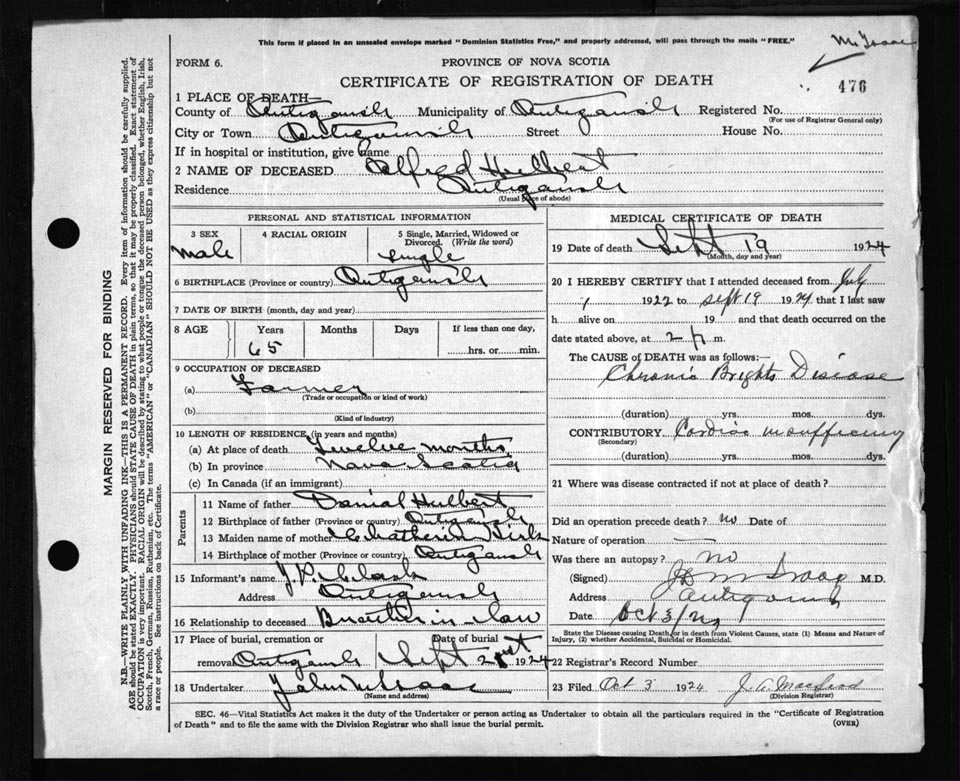 This form if placed in an unsealed envelope marked "Dominion Statistics Free," and properly addressed, will pass through the mails "FREE."
McIsaac
FORM 6.
PROVINCE OF NOVA SCOTIA
476
CERTIFICATE OF REGISTRATION OF DEATH
1 PLACE OF DEATH—
County of Antigonish Municipality of Antigonish Registered No.
(For use of Registrar General only)
City or Town Antigonish Street House No.
If in hospital or institution, give name
2 NAME OF DECEASED Alfred Hulbert
Residence Antigonish
(Usual place of abode)
PERSONAL AND STATISTICAL INFORMATION
3 SEX 4 RACIAL ORIGIN 5 Single, Married, Widowed or Divorced. (Write the word)
Male single
6 BIRTHPLACE (Province or country) Antigonish
7 DATE OF BIRTH (month, day and year)
8 AGE Years Months Days If less than one day,
65 hrs. or min.
9 OCCUPATION OF DECEASED
(a) Farmer
(Trade or occupation or kind of work)
(b)
(Kind of industry)
10 LENGTH OF RESIDENCE (in years and months)
(a) At place of death Twelve months
(b) In province Nova Scotia
(c) In Canada (if an immigrant)
Parents
11 Name of father Danial Hulbert
12 Birthplace of father (Province or country) Antigonish
13 Maiden name of mother Catherine
14 Birthplace of mother (Province or country) Antigonish
15 Informant's name J.P.
Address Antigonish
16 Relationship to deceased Brother in law
17 Place of burial, cremation or Date of burial
removal Antigonish Sept 21st 1924
18 Undertaker John McIsaac
(Name and address)
MEDICAL CERTIFICATE OF DEATH
19 Date of death Sept 19 1924
(Month, day and year)
20 I HEREBY CERTIFY that I attended deceased from July
1 1922 to Sept 19 1924 that I last saw
h alive on 19 and that death occurred on
date stated above, at 2 p m.
The CAUSE OF DEATH was as follows:—
Chronic Brights Disease
(duration) yrs. mos. dys.
CONTRIBUTORY Cardiac insufficiency
(Secondary)
(duration) yrs. mos. dys.
21 Where was disease contracted if not at place of death?
Did an operation precede death? no Date of
Nature of operation —
Was there an autopsy? no
(Signed) M.D.
Address Antigonish
Date Oct 3/24
State the Disease causing Death, or in death from Violent Causes, state (1) Means and Nature of
Injury, (2) whether Accidental, Suicidal or Homicidal.
22 Registrar's Record Number
23 Filed Oct 3 1924 J. A. MacLeod
(Division Registrar)
SEC. 46—Vital Statistics Act makes it the duty of the Undertaker or person acting as Undertaker to obtain all the particulars required in the "Certificate of Registration
of Death" and to file the same with the Division Registrar who shall issue the burial permit.
(OVER)
MARGIN RESERVED FOR BINDING
N.B.—WRITE PLAINLY WITH UNFADING INK—THIS IS A PERMANENT RECORD. Every item of information should be carefully supplied.
AGE should be stated EXACTLY. PHYSICIANS should STATE CAUSE OF DEATH in plain terms, so that it may be properly classified. Exact statement of
OCCUPATION is very important. RACIAL ORIGIN will be described by stating to what people or tongue the deceased person belonged, whether English, Irish,
Scotch, French, German, Russian, Ruthenian, etc. The terms "AMERICAN" or "CANADIAN" SHOULD NOT BE USED as they express citizenship but not
a race or people. See instructions on back of Certificate.